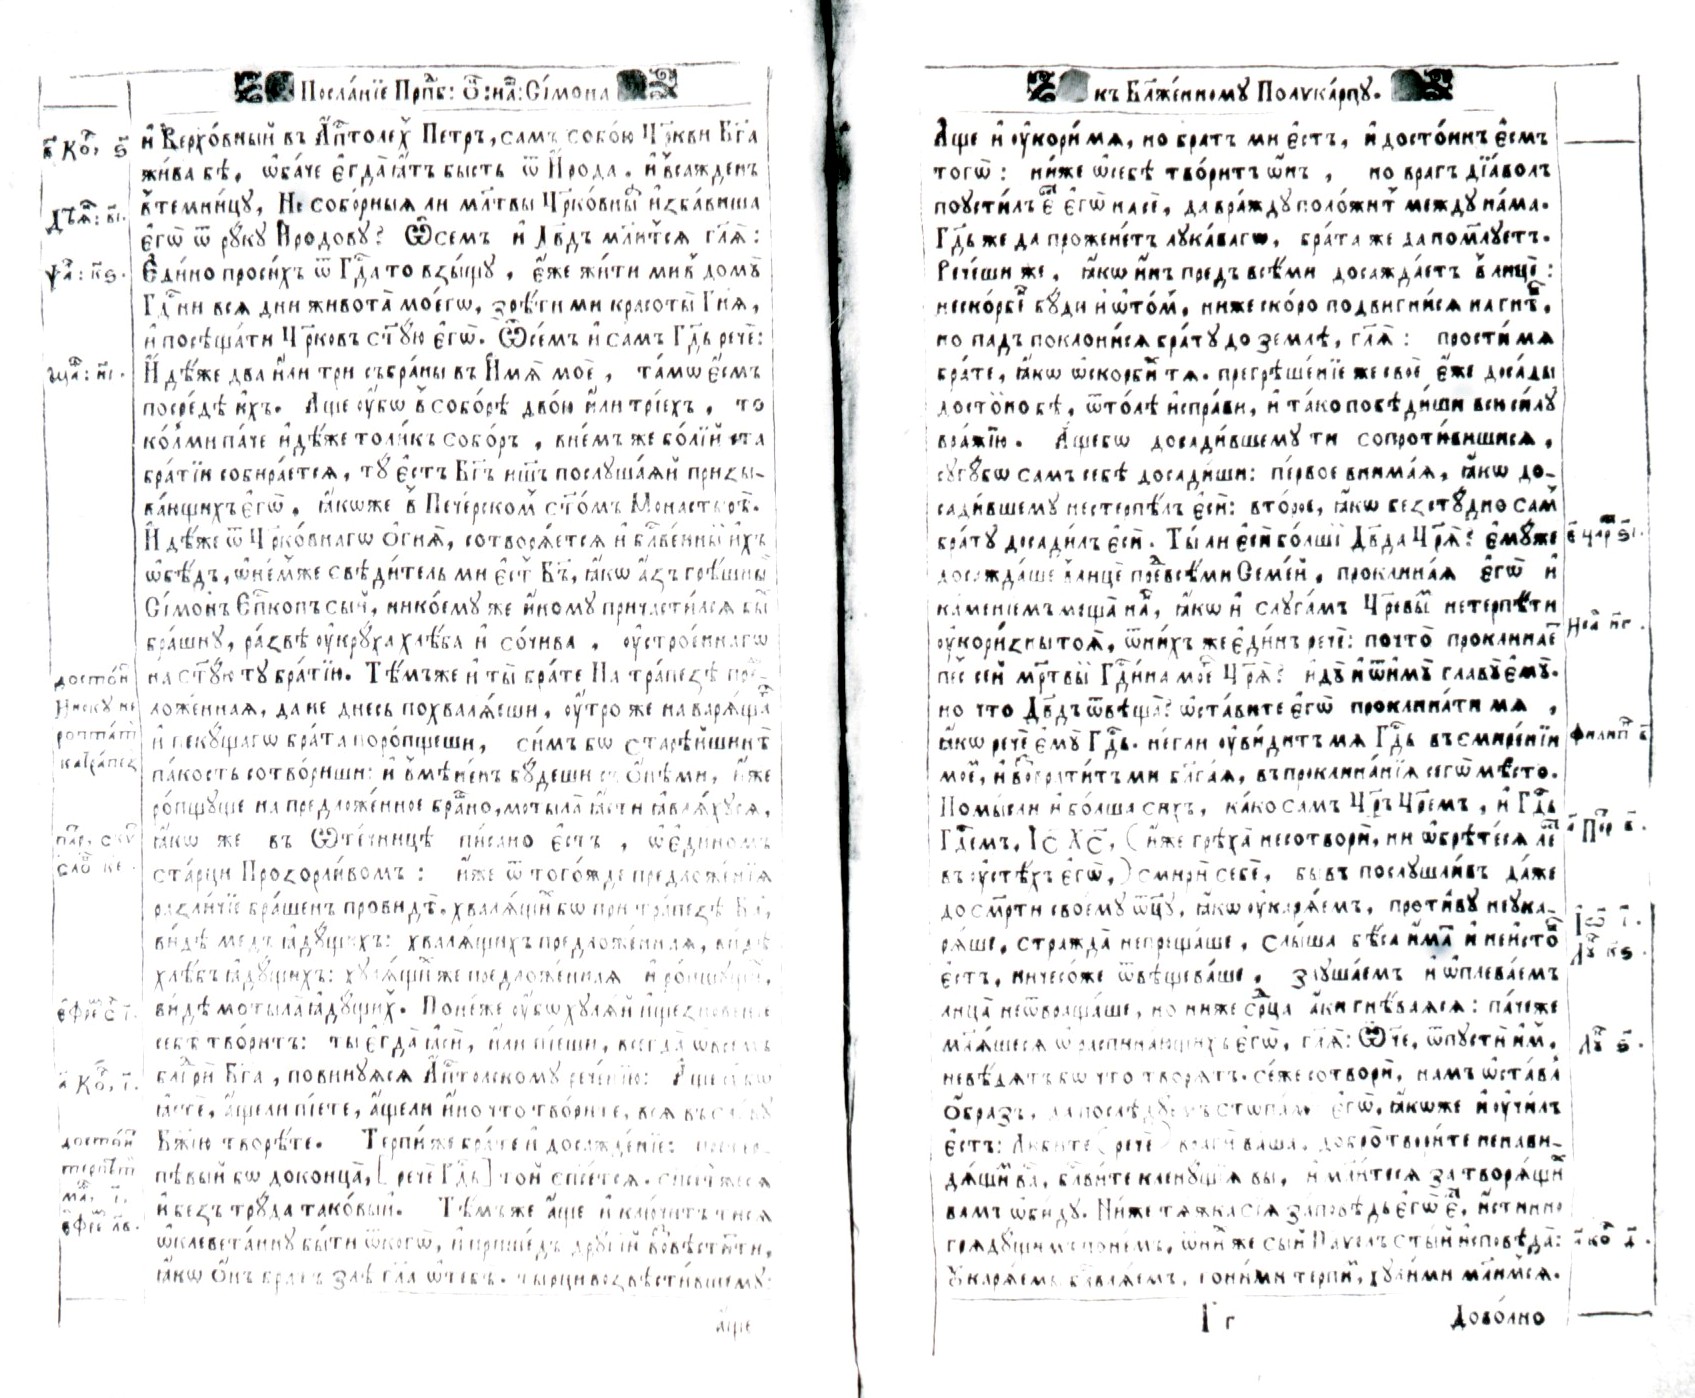 Посла́нїе Прⷣпб: Ѿ:на́: Сі́мона
и҆ Верхо́вный въ А҆пⷭ҇толех̾ Петръ, самъ собо́ю Цр҃кви Бж҃їа
жи́ва бѣ, ѡ҆ба́че є҆гда̀ ꙗ҆тъ бысть ѿ И҆рода. и҆ всажденъ
в̾темни́цу, Не собо́рныѧ ли мл҃твы Цр҃ко́вныѧ и҆зба́виша
є҆го̀ ѿ ру́ку И҆родову? Ѡ҆ семъ и҆ Дв҃дъ мл҃итсѧ гл҃ѧ:
Є҆ди́но проси́хъ ѿ Гдⷭ҇а то взыщу̀, є҆́же жи́ти ми в̾ домꙋ̀
Гдⷭ҇ни всѧ дни живота̀ моегѡ̀, зрѣ́ти ми красоты̀ Гнⷭ҇ѧ,
и҆ посѣща́ти Цр҃ковь ст҃у́ю є҆гѡ̀. Ѡ҆ се́мъ и҆ самъ Гдⷭ҇ь речѐ:
И҆дѣ́же два и҆̀ли три събра́ны въ И҆мѧ̀ моѐ, та́мѡ є҆́смь
посредѣ̀ и҆́хъ. А҆ще у҆́бѡ в̾ собо́рѣ двою̀ и҆̀ли трїе́хъ, то
ко́лми па́че и҆дѣ́же толи́къ собо́ръ, в не́мъ же бо́лїй ста
бра́тїи собира́етсѧ, ту̀ є҆́стъ Бг҃ъ нш҃ъ послуша́ѧй призы-
ва́ющихъ є҆гѡ̀, ꙗ҆́коже в̾ Пече́рскомъ ст҃о́мъ Монастырѣ̀.
И҆дѣ́же ѿ Цр҃ко́внагѡ ѻ҆гнѧ̀, сотворѧ́етсѧ и҆ бл҃ве́нный и҆́хъ
ѡ҆бѣ́дъ, ѡ҆ не́мже свѣди́тель ми є҆́стъ Бг҃ъ, ꙗ҆́кѡ а҆́зъ грѣ́шный
Сі́монъ Єпⷭ҇копъ сы́й, нико́ему же и҆но́му причасти́лсѧ бы́х
бра́шну, ра́звѣ у҆кру́ха хлѣ́ба и҆ со́чива, у҆стро́еннагѡ
на ст҃у́ю ту̀ бра́тїю. Тѣ́мъже и҆ ты̀ бра́те На тра́пезѣ пре́д-
ло́женнаѧ, да не днесь похвалѧ́еши, у҆́тро же на варѧ́ща
и҆ пеку́щагѡ бра́та поро́пщеши, си́мъ бѡ старѣ́йшинѣ
па́кость сотво́риши: и҆ в̾мѣне́нъ бу́деши съ ѻ҆нѣ́ми, и҆́же
ро́пщуще на предложе́нное бра́шно, мотыла̀ ꙗ҆́сти ꙗ҆влѧ́хусѧ,
ꙗ҆́кѡ же въ Ѻ҆те́чницѣ пи́сано є҆́стъ, ѡ҆ є҆ди́номъ
ста́рци Прозорли́вомъ: и҆́же ѿ того́жде предложе́нїѧ
разли́чїе бра́шенъ прови́дѣ. хвалѧ́щїи бѡ при тра́пезѣ Бг҃а,
ви́дѣ медъ ꙗ҆ду́щихъ: хвалѧ́щихъ предложе́ннаѧ, ви́дѣ
хлѣ́бъ ꙗ҆ду́щихъ: хулѧ́щїи же предложе́ннаѧ и҆ ро́пщущїи,
ви́дѣ мотыла̀ ꙗ҆ду́щих̾. Поне́же у҆́бѡ хулѧ́й и҆щезнове́нїе
себѣ̀ тво́ритъ: ты̀ є҆гда̀ ꙗ҆сѝ, и҆ли пїе́ши, всегда̀ ѡ҆ все́мъ
бл҃гдрѝ Бг҃а, повину́ѧсѧ А҆пⷭ҇толскому рече́нїю: А҆ще у҆́бѡ
ꙗ҆стѐ, а҆́щели пїе́те, а҆́щели и҆но что твори́те, всѧ въ сла́ву
Бж҃їю творѣ́те. Терпи́ же бра́те и҆ досажде́нїе: претер-
пѣ́вый бѡ до конца̀, [речѐ Гдⷭ҇ь] то́й сп҃се́тсѧ. сп҃се́тжесѧ
и҆ безъ труда̀ тако́вый. Тѣ́мъже а҆́ще и҆ ключи́тътисѧ
ѡ҆клевета́нну бы́ти ѿ когѡ̀, и҆ прише́дъ други́й возвѣсти́тти,
ꙗ҆́кѡ ѻ҆́нъ бра́тъ злѣ̀ гл҃а ѡ҆ тебѣ̀. ты̀ рци возвѣсти́вшему:
а҆́ще
в҃ Ко́р, ѕ҃
Дѣѧ́: в҃і.
ѱа́: к҃ѕ.
Маѳ: и҃і.
досто́ит
Ниску не
ропта́ти
на тра́пез
па́р, ску
сло̀ ке.
є҆фре́ с҃ і҃.
а҃ Ко́р, і҃.
досто́ит
терпѣ́ти
маѳ, і҃.
є҆фре́ л҃в.
къ Блаже́нному Полука́рпу.
А҆ще и҆ у҆кори́ мѧ, но бра́тъ ми є҆́стъ, и҆ досто́инъ є҆́смъ
тогѡ̀: ни́же ѡ҆ себѣ̀ тво́ритъ ѻ҆́нъ, но врагъ дїа́волъ
поусти́лъ є҆́стъ є҆гѡ̀ на сѐ, да вражду̀ поло́жит̾ между на́ма.
Гдⷭ҇ь же да прожене́тъ лука́вагѡ, бра́та же да помл҃уетъ.
Рече́ши же, ꙗ҆́кѡ ѻ҆́нъ предъ всѣ́ми досажда́етъ в̾ лицѐ:
не ско́рбе́н бу́ди и҆ ѡ҆ то́м, ниже ско́ро подви́гнисѧ на гнѣ́в,
но пад̾ поклони́сѧ бра́ту до землѣ̀, гл҃ѧ: прости́ мѧ
бра́те, ꙗ҆́кѡ ѡ҆скорби́х тѧ. прегрѣше́нїе же своѐ є҆́же досады
досто́йно бѣ, ѿто́лѣ и҆спра́ви, и҆ та́ко побѣди́ши всю си́лу
вра́жїю. А҆щебѡ досади́вшему ти сопроти́вишисѧ,
сугу́бѡ самъ себѣ̀ досади́ши: пе́рвое внима́ѧ, ꙗ҆́кѡ до-
сади́вшему не стерпѣ́лъ є҆сѝ: второ́е, ꙗ҆́кѡ безсту́дно сам̾
бра́ту досади́лъ є҆сѝ. Ты̀ ли є҆сѝ бо́лшїй Дв҃да Цр҃ѧ̀? є҆му́же
досажда́ше в̾ лицѐ пре́д всѣ́ми Семе́й, проклина́ѧ є҆гѡ̀ и҆
ка́менїемъ меща̀ на́нь, ꙗ҆́кѡ и҆ слуга́мъ Цр҃евым̾ не терпѣ́ти
у҆кори́зны тоѧ̀, ѿ ни́хъ же є҆ди́нъ речѐ: почто̀ проклина́ет
пе́с се́й мр҃твый Гдⷭ҇и́на моего̀ Цр҃ѧ̀? и҆ду̀ и҆ ѿиму̀ главу̀ є҆му̀.
но что Дв҃дъ ѿвѣща̀? ѡ҆ста́вите є҆гѡ̀ проклина́ти мѧ,
ꙗ҆́кѡ речѐ є҆му̀ Гдⷭ҇ь. не́гли у҆ви́дитъ мѧ Гдⷭ҇ь въ смире́нїи
мое́м, и҆ возврати́тъ ми бл҃га́ѧ, въ проклина́нїѧ сегѡ̀ мѣ́сто.
Помысли и҆ бо́лша си́хъ, ка́ко самъ Цр҃ь Цр҃емъ, и҆ Гдⷭ҇ь
Гдⷭ҇емъ, І҃с Х҃с, (и҆́же грѣха̀ не сотворѝ, ни ѡ҆брѣ́тесѧ ле́сть
въ у҆стѣ́хъ є҆гѡ̀,) смирѝ себѐ, бывъ послушли́въ да́же
до см҃рти своему̀ ѿц҃у, ꙗ҆́кѡ у҆карѧ́емъ, проти́ву не ука-
рѧ́ше, стражда̀ не преща́ше, слы́ша бѣ́са и҆́мать и҆ неи́стов
є҆́стъ, ничесо́же ѿвѣщева́ше, заушаемъ и҆ ѡ҆плева́емъ
лица̀ не ѿвраща́ше, но ниже ср҃дца а҆́ки гнѣ́ваѧсѧ: па́че же
мл҃ѧ́шесѧ ѡ҆ распина́ющихъ є҆гѡ̀, гл҃ѧ: Ѻ҆́ч҃е, ѿпусти́ и҆̀м,
не вѣ́дѧтъ бѡ что творѧ́тъ. се́же сотворѝ, намъ ѡ҆ста́влѧ
ѻ҆́бразъ, да послѣ́дуемъ стопа́мъ є҆гѡ̀, ꙗ҆́коже и҆ у҆чи́лъ
є҆́стъ: Люби́те (речѐ) врагѝ ва́ша, добро̀ твори́те ненави-
дѧ́щим ва́с, бл҃ви́те клену́щыѧ вы, и҆ мл҃и́тесѧ за творѧ́щих̾
вамъ ѡ҆би́ду. Ни́же тѧжка̀ сїѧ̀ за́повѣдь є҆гѡ̀ є҆́стъ, и҆́стинно
грѧду́щимъ по не́мъ, ѿ ни́х же сы́й Па́велъ ст҃ы́й и҆сповѣ́да:
У҆карѧ́еми бл҃влѧ́емъ, гони́ми терпи́м, ху́лими мл҃и́мсѧ.
І г
Дово́лно
в҃ цр҃ ѕ҃і.
Иса н҃г.
Филип в҃
а҃ Пе́тр в҃.
І҆ѡ́ і҃.
Лу́ к҃ѕ.
Лу́ ѕ҃.
а҃ ко́р д҃.